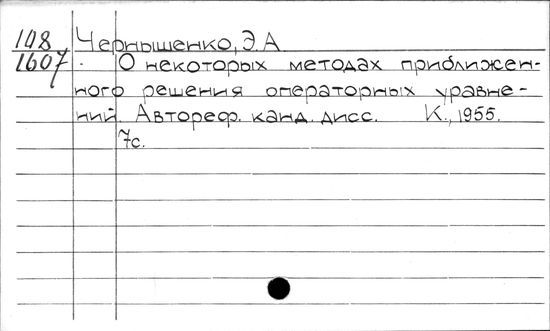 108 Чернышенко, Э.А
1607 О некоторых методах приближен-
ного решения операторных уравне-
ний. Автореф. канд. дисс. К., 1955.
7с.